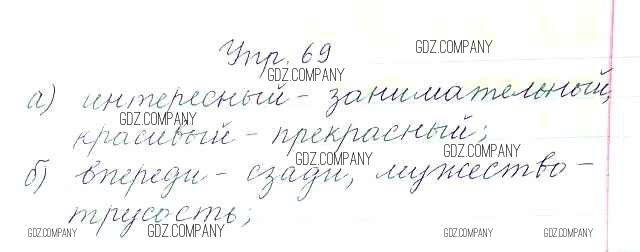 Упр. 69
GDZ.COMPANY
GDZ.COMPANY
а) интересный - занимательный,
GDZ.COMPANY GDZ.COMPANY
красивый - прекрасный;
GDZ.COMPANY GDZ.COMPANY
б) впереди - сзади, мужество -
трусость;
GDZ.COMPANY GDZ.COMPANY GDZ.COMPANY GDZ.COMPANY